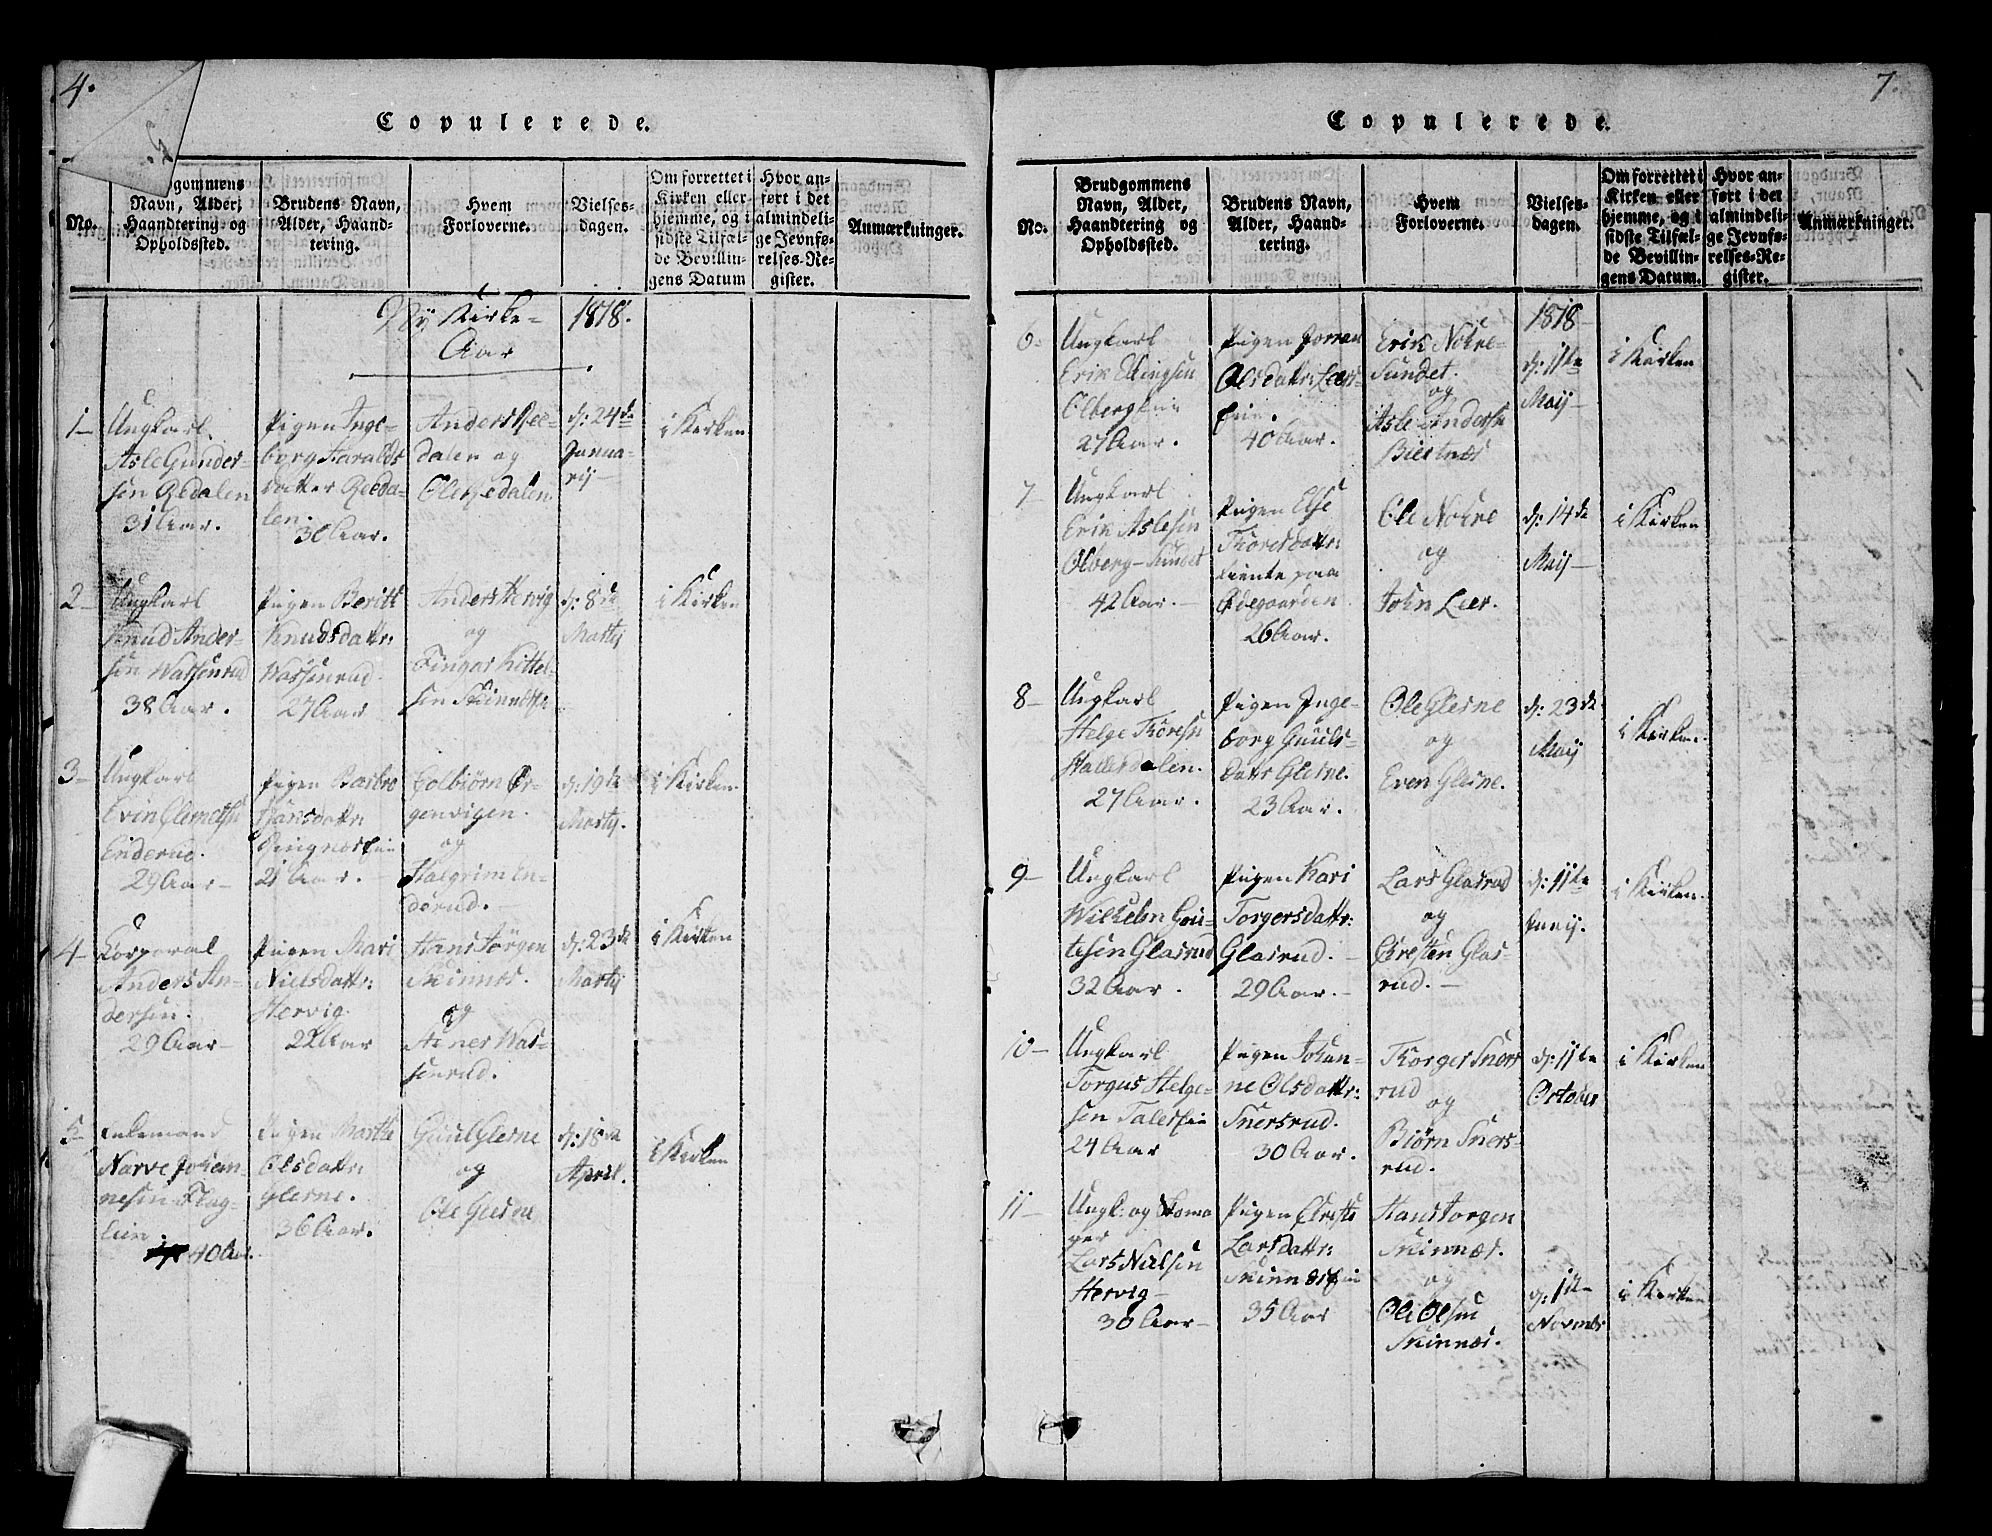 4.
Copulerede.
No.
gommens
Navn, Alder,
Haandtering og
Opholdssted.
Brudens Navn,
Alder, Haand-
tering.
Hvem
Forloverne.
Vielses-
dagen.
Om forrettet i
Kirken eller
hjemme, og i
sidste Tilfæl-
de Bevillin-
gens Datum
Hvor an-
ført i det
almindeli-
ge Jevnfø-
relses-Re-
gister.
Anmærkninger.
Ny Kirke-
Aar
1818.
1-
Ungkarl
Asle Gunder-
sen Redalen
31 Aar.
Pigen Inge-
borg Haralds
datter Reeda-
len.
30 Aar.
Anders Ree-
dalen og
Ole Redalen
d: 24de
Janua-
rij-
i Kirken
2-
Ungkarl
Knud Ander-
sen Wassenrud
38 Aar.
Pigen Beritt
Knudsdattr:
Wassenrud
27 Aar
Anders Hervig
og
Kittel-
sen
d: 8de
Martij
i Kirken
3-
Ungkarl
Evin Clemetsn
Enderud.
29 Aar-
Pigen Barbro
Hansdattr:
Ringnæseie
21 Aar.-
Colbiørn Ør-
genvigen.
og
Halgrim En-
derud.-
d: 19de
Martij.
i Kirken.
4-
Corporal
Anders An-
dersen.
29 Aar-
Pigen Mari
Nielsdattr:
Hervig
22 Aar
Hans Jørgen
Skinnes.
og
Asner Was-
senrud.
d: 23de
Martij
i Kirken
5-
Enkemand
Narve Johan-
nesen Flag-
Eie
40 Aar.
Pigen Marthe
Olsdattr:
Glesne.
36 Aar.
Guul Glesne
og
Ole Glesne
d: 18de
April.
i Kirken
7.
Copulerede.
No.
Brudgommens
Navn, Alder,
Haandtering og
Opholdssted.
Brudens Navn,
Alder, Haand-
tering.
Hvem
Forloverne.
Vielses-
dagen.
Om forrettet i
Kirken eller
hjemme, og i
sidste Tilfæl-
de Bevillin-
gens Datum.
Hvor an-
ført i det
almindeli-
ge Jevnfø-
relses-Re-
gister.
Anmærkninger.
6-
Ungkarl
Erik Ellingsen
Olbergeie
27 Aar.
Pigen Jorran
Olsdattr: Leers-
Eie.
40 Aar.
Erik Nohre-
Sundet.
og
Asle Andersn
Biertnæs
1818
d: 11te
Maij-
i Kirken
7-
Ungkarl
Erik Aslesen
Olberg-Sundet
42 Aar.-
Pigen Else
Thoresdattr:
tiente paa
Ødegaarden
26 Aar.
Ole Nohre
og
John Leer.
d: 14de
Maij-
i Kirken
8-
Ungkarl
Helge Thoresn
Hallesdalen.
27 Aar.
Pigen Inge-
borg Guuls-
dattr Glesne.
23 Aar.
Ole Glesne
og
Even Glesne.
d: 23de
Maij
i Kirken.
9-
Ungkarl
Wilhelm Gu-
Glasrud
32 Aar.
Pigen Kari
Torgersdattr:
Glasrud.-
29 Aar.-
Lars Glasrud
og
Christen Glas-
rud.-
d: 11te
Junij.
i Kirken.
10-
Ungkarl
Torgus Helge-
sen
24 Aar
Pigen Johan-
ne Olsdattr:
Snersrud.
30 Aar.
Thorger Sners
rud
og
Biørn Sners-
rud.
d: 11te
October
i Kirken
11-
Ungk: og Skoma
ger
Lars Nielsen
Hervig-
30 Aar-
Pigen Christi
Larsdattr:
Skinnæseie
35 Aar
Hans Jorgen
Skinnæs.
og
Ole Olsen
Skinnæs.
d: 1te
Novmbr
i Kirken